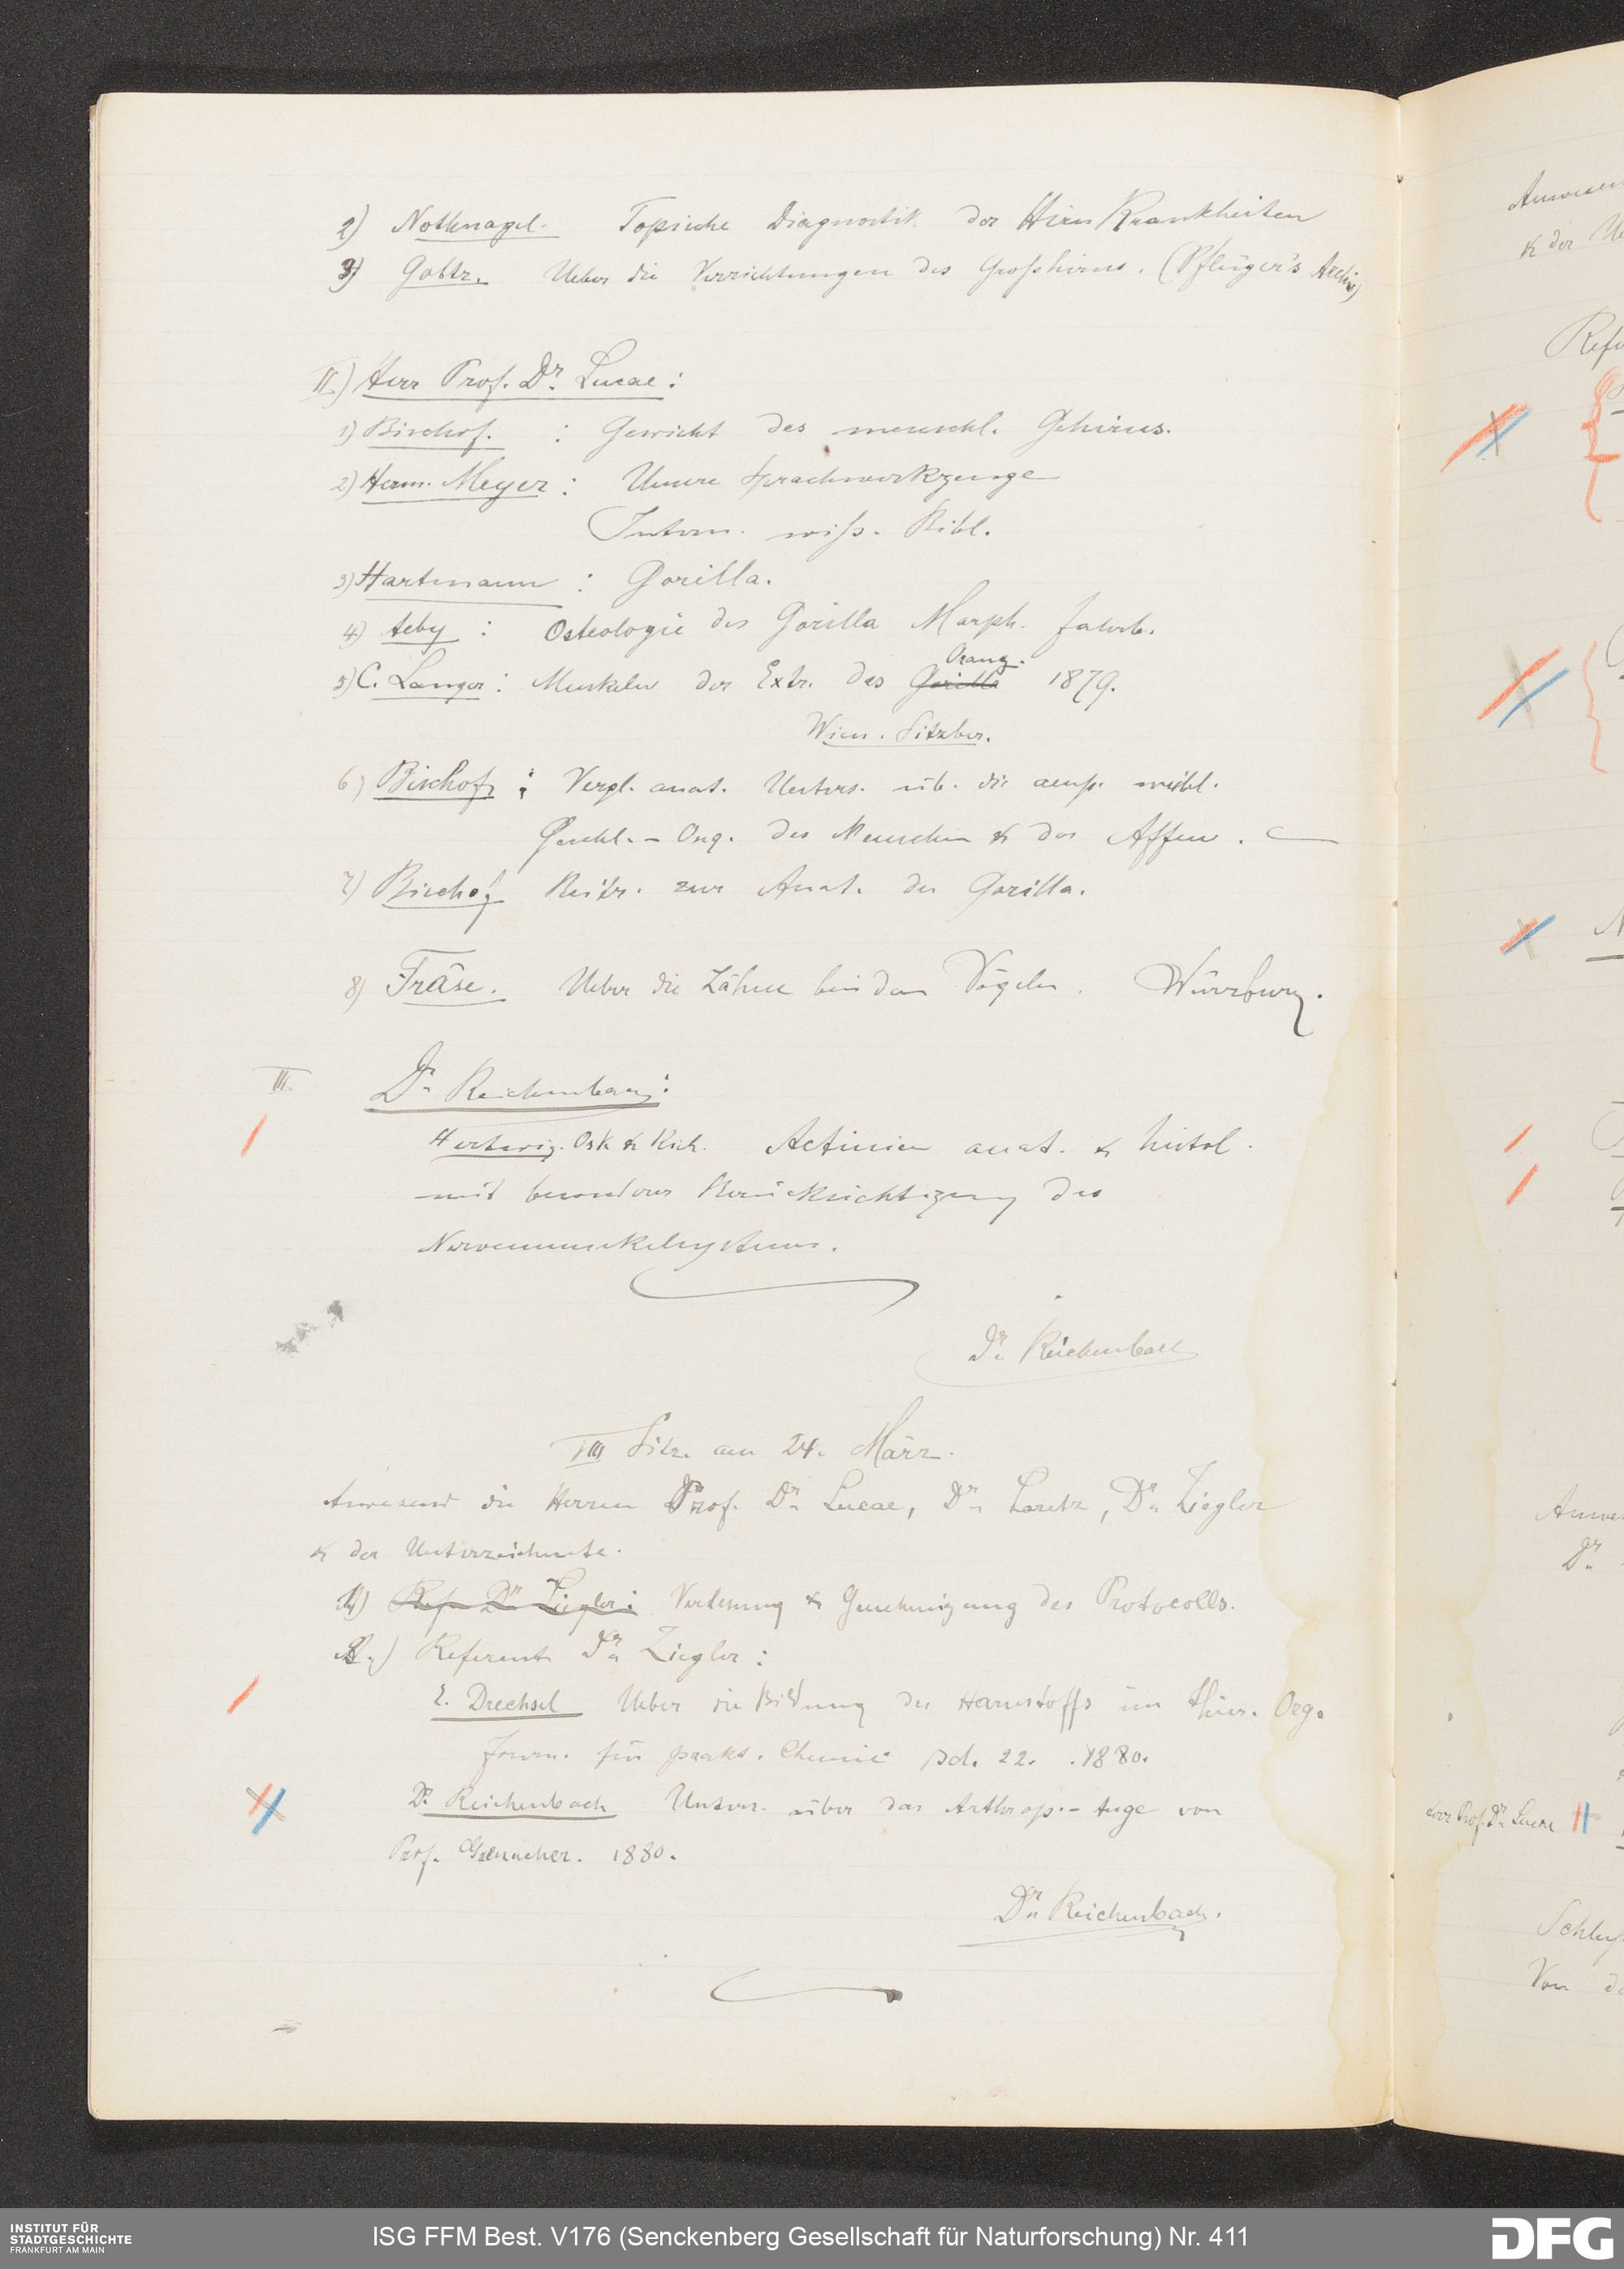 2) Nothnagel. Topische Diagnostik der Hirn Krankheiten
3) Goltz. Ueber die Verrichtungen des Grosshirns. (Pflüger's Archiv)
II.) Herr Prof. Dr. Lucae:
1) Bischof. : Gewicht des menschl. Gehirns.
2) Herm. Meyer: Unsere Sprachwerkzeuge
Intern. wiss. Bibl.
3) Hartmann: Gorilla.
4) Aeby: Osteologie des Gorilla Morph. Jahrb.
5) C. Langer: Muskeln der Extr. des Gorilla Orang. 1879.
Wien. Sitzber.
6) Bischof: Vergl. anat. Unters. üb. die aeuss. weibl.
Geschl.-Org. des Menschen & der Affen.
7) Bischof Beitr. zur Anat. des Gorilla.
8) Fräse. Ueber die Zähne bei den Vögeln. Würzburg.
III. Dr. Reichenbach:
Hertwig. Osk & Rich. Actinien anat. & histol.
mit besonderer Berücksichtigung des
Nervenmuskelsystems.
Dr. Reichenbach
VIII Sitz. am 24. März.
Anwesend die Herren Prof. Dr. Lucae, Dr. Loretz, Dr. Ziegler
& der Unterzeichnete.
Ref. Dr. Ziegler: Verlesung & Genehmigung des Protocolls.
Referent Dr. Ziegler:
E. Drechsel Ueber die Bildung des Harnstoffs im thier. Org.
Journ. für prakt. Chemie Bd. 22. 1880.
Dr. Reichenbach Unters. über das Arthrop.-Auge von
Prof. Grenacher. 1880.
Dr. Reichenbach.
Anwesen
& der Un
Refe
Anwes
Dr.
Herr Prof. Dr. Lucae
Schluss
Von de
INSTITUT FÜR
STADTGESCHICHTE
FRANKFURT AM MAIN
ISG FFM Best. V176 (Senckenberg Gesellschaft für Naturforschung) Nr. 411
DFG